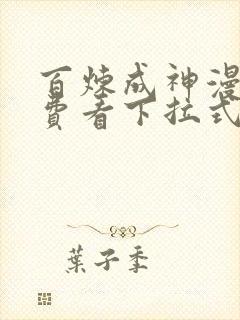 百炼成神漫
费看下拉式
葉子季